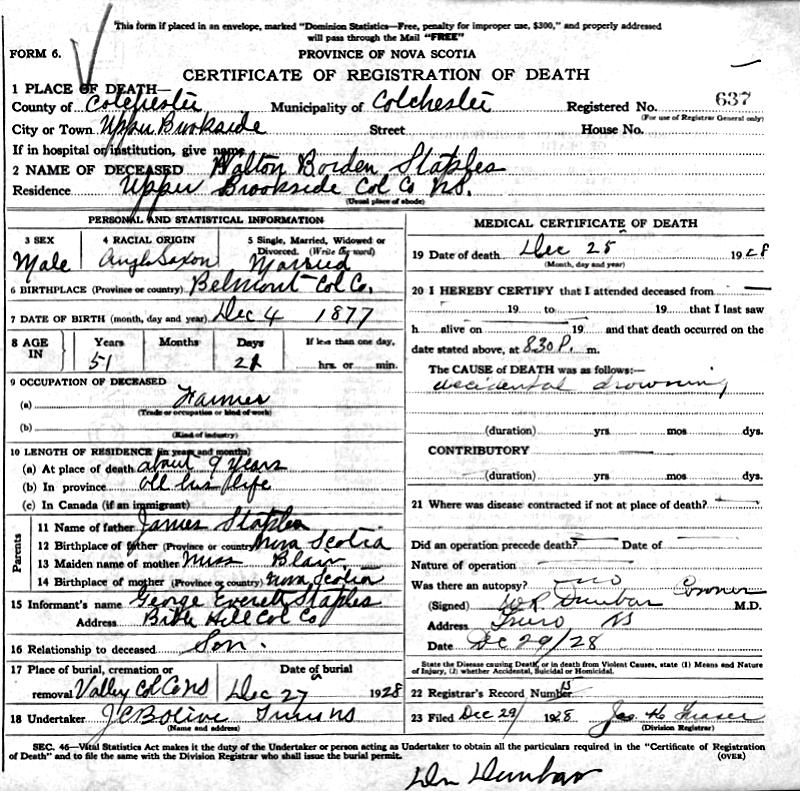 This form if placed in an envelope, marked "Dominion Statistics—Free, penalty for improper use, $300," and properly addressed
will pass through the Mail "FREE"
FORM 6.
PROVINCE OF NOVA SCOTIA
CERTIFICATE OF REGISTRATION OF DEATH
1 PLACE OF DEATH—
County of Colchester Municipality of Colchester Registered No. 637
(For use of Registrar General only)
City or Town Upper Brookside Street House No.
If in hospital or institution, give name
2 NAME OF DECEASED Walton Borden Staples
Residence Upper Brookside Col Co NS.
(Usual place of abode)
PERSONAL AND STATISTICAL INFORMATION
3 SEX 4 RACIAL ORIGIN 5 Single, Married, Widowed or
Divorced. (Write the word)
Male Anglo Saxon Married
6 BIRTHPLACE (Province or country) Belmont Col Co.
7 DATE OF BIRTH (month, day and year) Dec 4 1877
8 AGE IN Years Months Days If less than one day,
51 21 hrs. or min.
9 OCCUPATION OF DECEASED
(a) Farmer
(Trade or occupation or kind of work)
(b)
(Kind of industry)
10 LENGTH OF RESIDENCE (in years and months)
(a) At place of death about 9 years
(b) In province all his life
(c) In Canada (if an immigrant)
Parents
11 Name of father James Staples
12 Birthplace of father (Province or country) Nova Scotia
13 Maiden name of mother Miss Blair
14 Birthplace of mother (Province or country) Nova Scotia
15 Informant's name George Everett Staples
Address Bible Hill Col Co
16 Relationship to deceased Son.
17 Place of burial, cremation or Date of burial
removal Valley Col Co NS Dec 27 1928
18 Undertaker J C Bolive Truro NS
(Name and address)
MEDICAL CERTIFICATE OF DEATH
19 Date of death Dec 25 1928
(Month, day and year)
20 I HEREBY CERTIFY that I attended deceased from
19 to 19 that I last saw
h alive on 19 and that death occurred on
date stated above, at 8.30 P. m.
The CAUSE of DEATH was as follows:—
accidental drowning
(duration) yrs mos dys.
CONTRIBUTORY
(duration) yrs mos dys.
21 Where was disease contracted if not at place of death?
Did an operation precede death? Date of
Nature of operation
Was there an autopsy? no Coroner
(Signed) W R Dunbar M.D.
Address Truro NS
Date Dec 29/28
State the Disease causing Death, or in death from Violent Causes, state (1) Means and Nature
of Injury, (2) whether Accidental, Suicidal or Homicidal.
22 Registrar's Record Number
23 Filed Dec 29/ 1928 Jas. H. Fraser
(Division Registrar)
SEC. 46—Vital Statistics Act makes it the duty of the Undertaker or person acting as Undertaker to obtain all the particulars required in the "Certificate of Registration
of Death" and to file the same with the Division Registrar who shall issue the burial permit.
(OVER)
Dr Dunbar